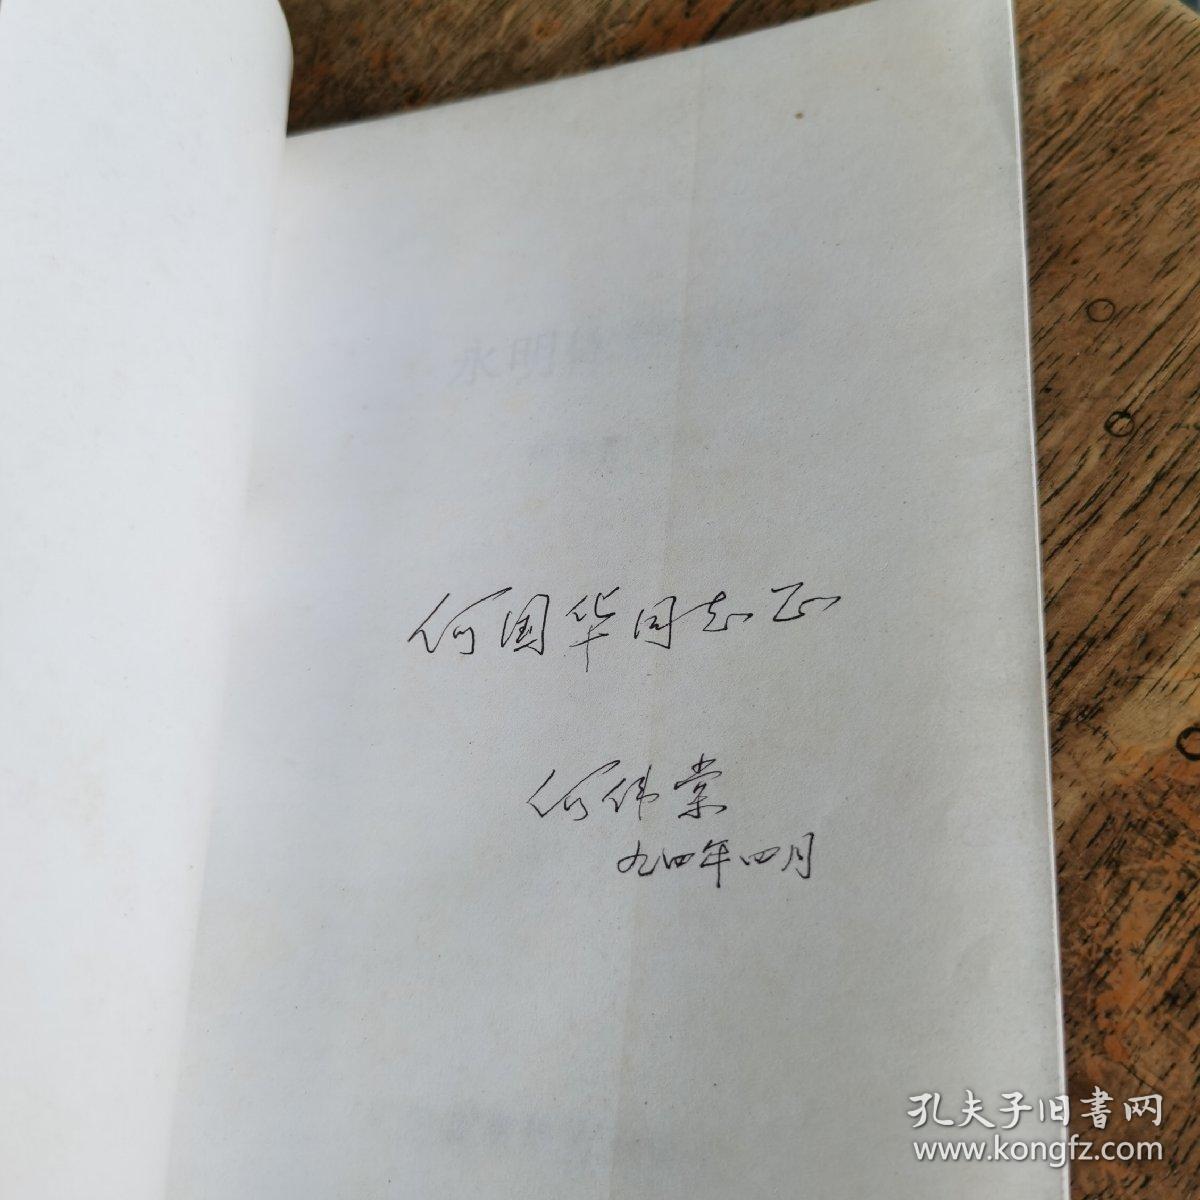 永明
何国华同志正
何伟棠
九四年四月
孔夫子旧書网
www.kongfz.com